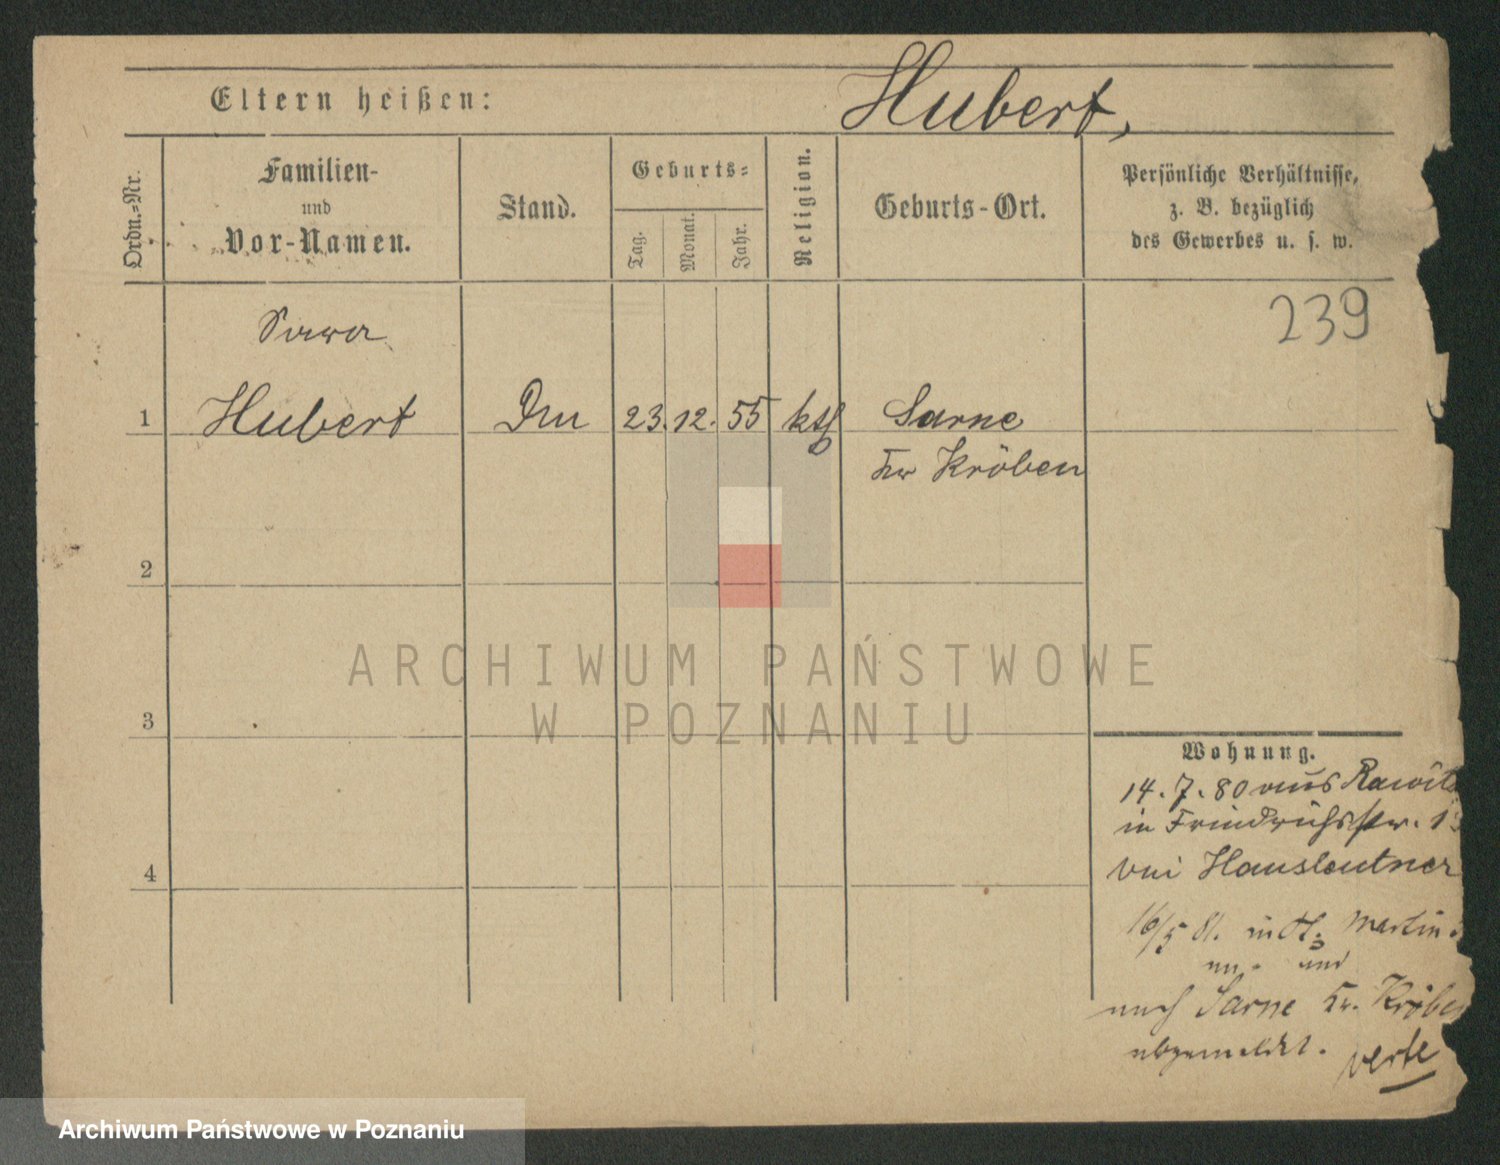 Eltern heißen: Hubert,
Ordn.-Nr.
Familien-
und
Vor-Namen.
Stand.
Geburts-
Tag.
Monat.
Jahr.
Religion.
Geburts-Ort.
Persönliche Verhältnisse,
z. B. bezüglich
des Gewerbes u. s. w.
239
1 Hubert 23. 12. 55 kth Sarne
Kr Kröben
2
3
4
Wohnung.
14. 7. 80 aus Rawit
in Friedrichsstr. 13
bei Hausleutner
16/5 81. in St. Martin
und
nach Sarne Kr. Kröbe
abgemeldet. verte
ARCHIWUM PAŃSTWOWE
W POZNANIU
Archiwum Państwowe w Poznaniu